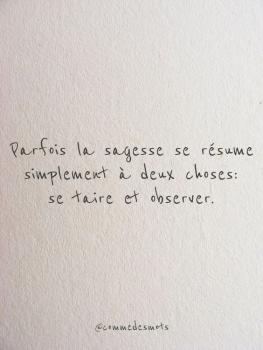 Parfois la sagesse se résume
simplement à deux choses:
se taire et observer.
@commedesmots